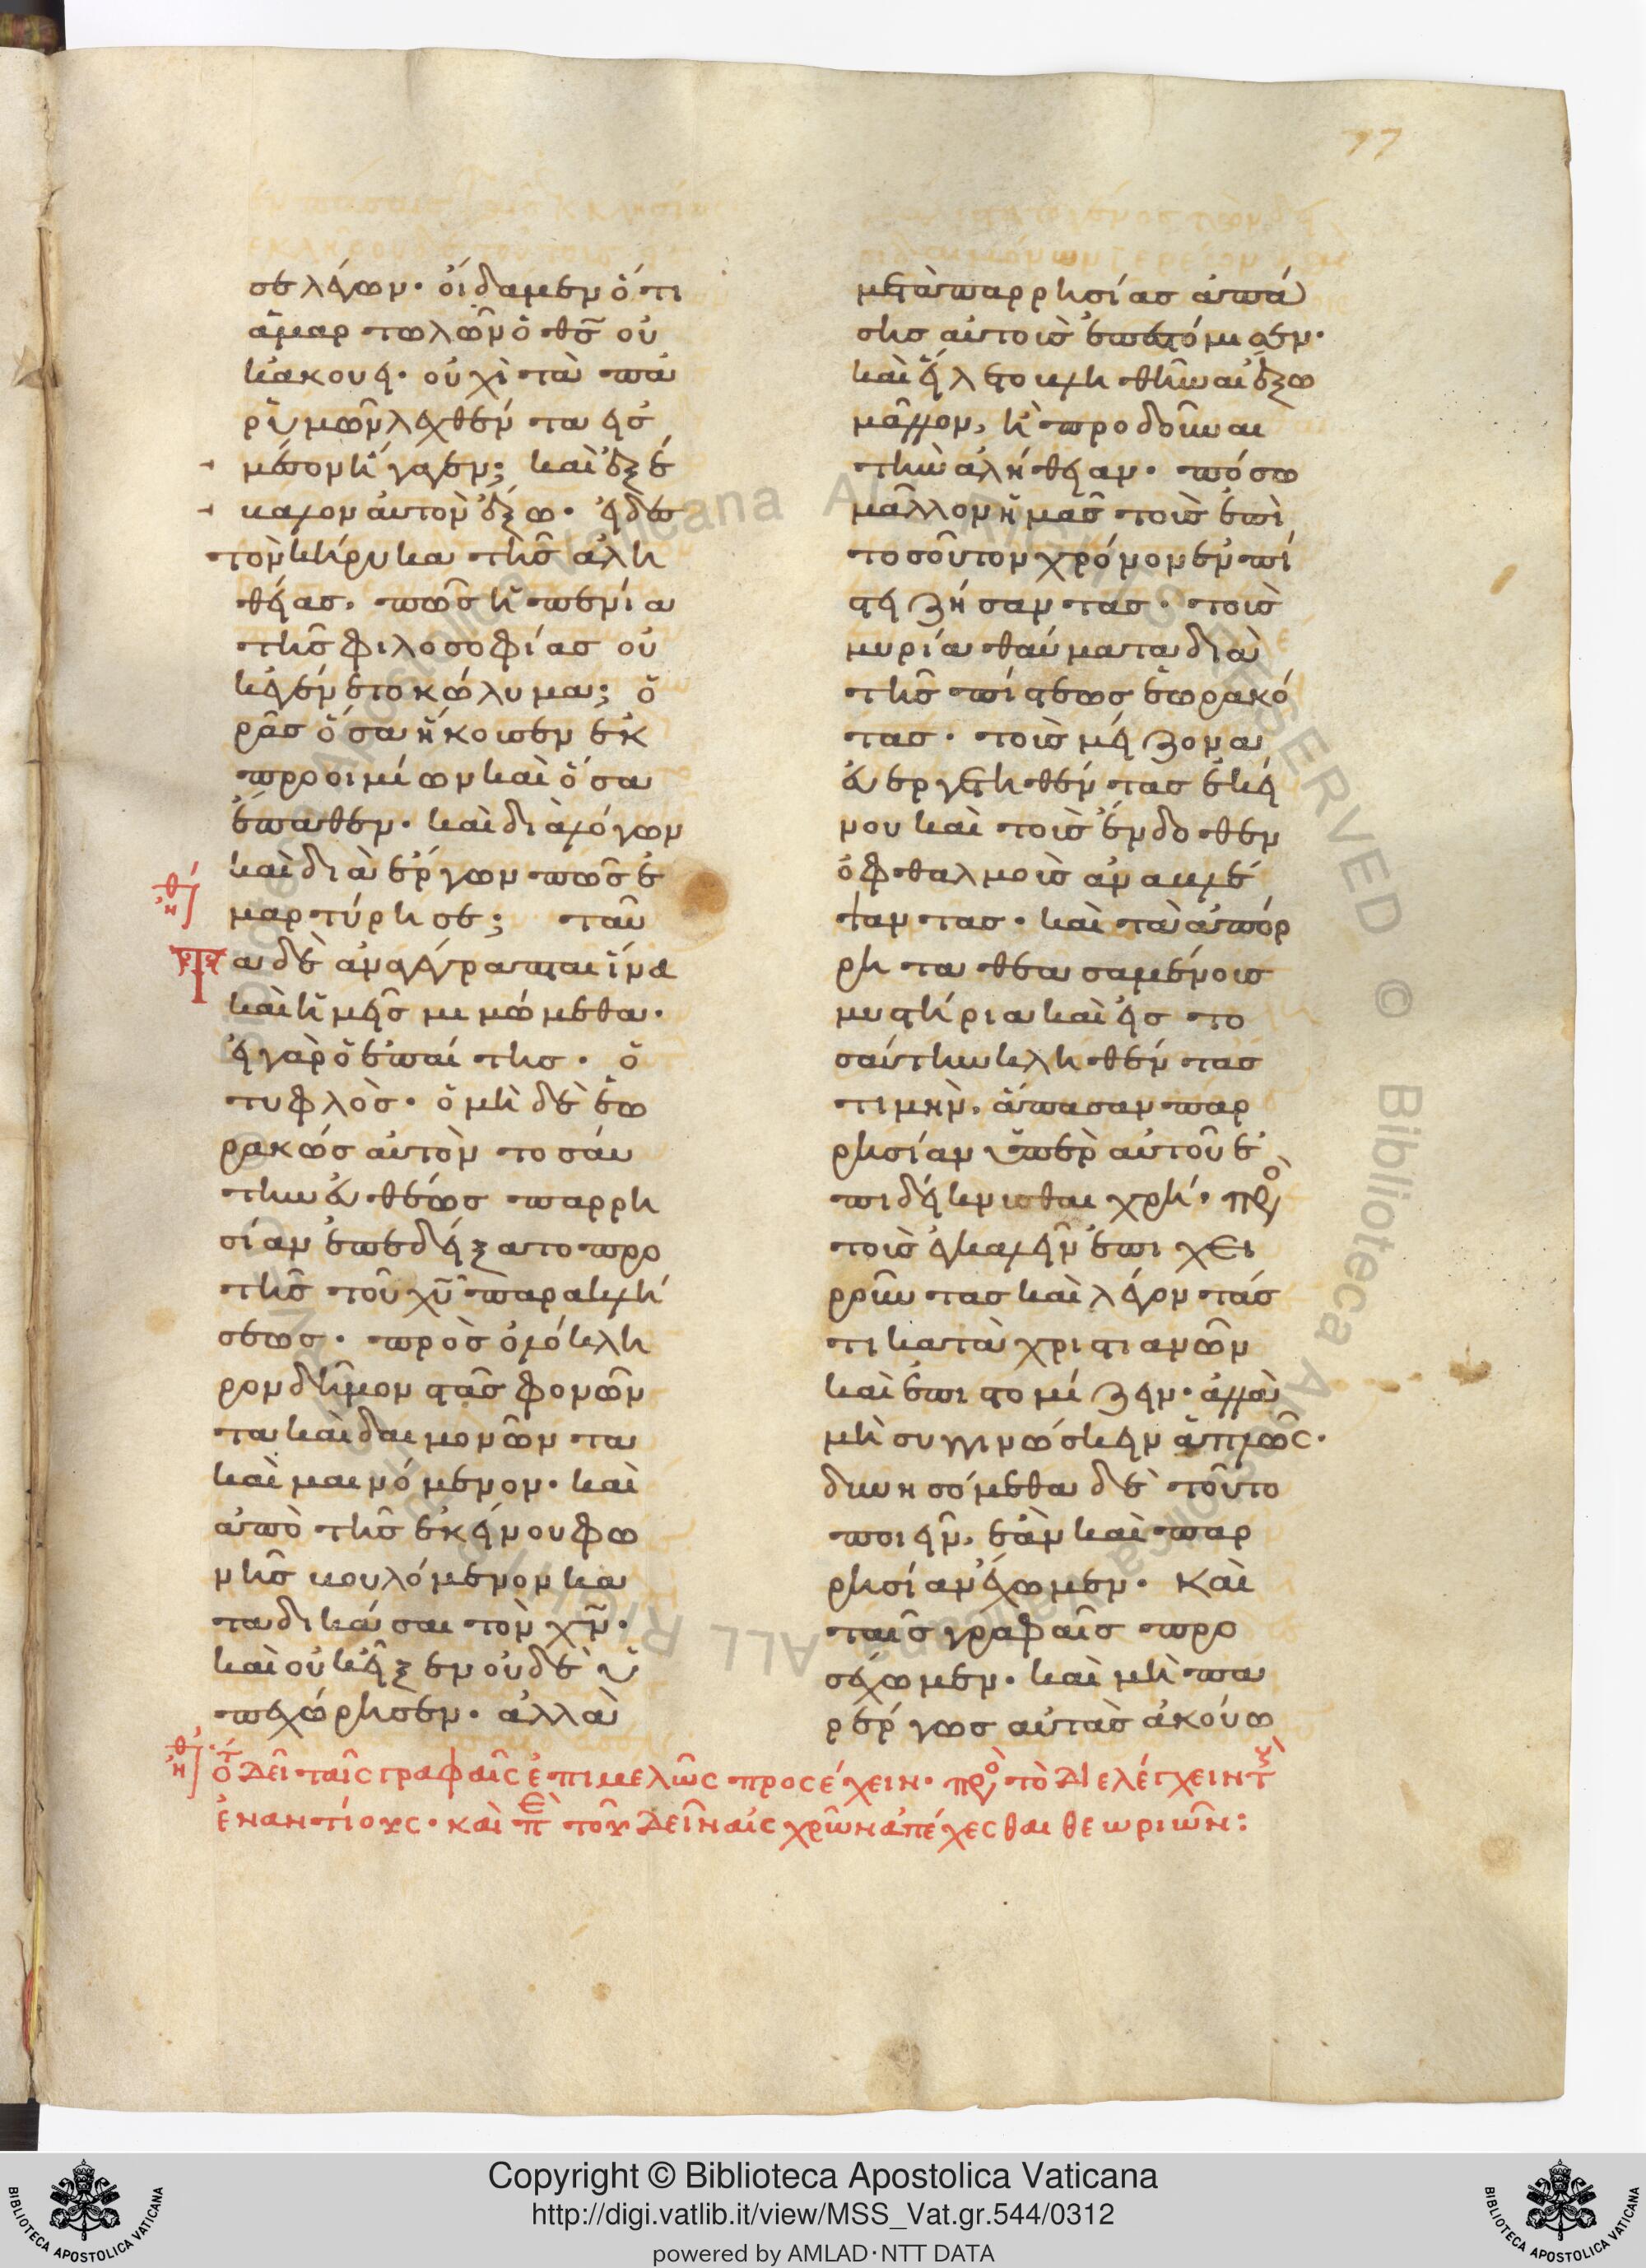 77
σε λέγων· οἴδαμεν ὅτι
ἁμαρτωλῶν ὁ θς οὐ
κἀκουει· οὐχὶ τὰ πα
ρ' ὑμῶν λεχθέντα εἰς
μέσον ἤγαγεν; καὶ ἐξέ
βαλον αὐτὸν ἔξω· εἶδες
τὸν κήρυκα τῆς ἀλη
θείας. πῶς ἡ πενία
τῆς φιλοσοφίας οὐ
κ ἐγένετο κώλυμα; ὁ
ρᾶς ὅσα ἤκουσεν ἐκ
προοιμίων καὶ ὅσα
ἔπαθεν· καὶ διὰ λόγων
καὶ διὰ ἔργων πῶς ἐ
μαρτύρησε; ταῦ
Τα δὲ ἀναγέγραπται ἵνα
καὶ ἡμεῖς μιμώμεθα·
εἰ γὰρ ὁ ἐπαίτης· ὁ
τυφλὸς· ὁ μὴ δὲ ἑω
ρακώς αὐτὸν τοσαύ
την εὐθέως παρρη
σίαν ἐπεδείξατο πρὸ
τῆς τοῦ χυ παρακλή
σεως· πρὸς ὁλόκλη
ρον δῆμον στὰς φονῶν
τα καὶ δαιμονῶντα
καὶ μαινόμενον· καὶ
ἀπὸ τῆς ἐκείνου φω
νῆς βουλόμενον κα
ταδικάσαι τὸν χν·
καὶ οὐκ εἶξεν οὐδὲ ὑ
πεχώρησεν· ἀλλὰ
μετὰ παρρησίας ἁπά
σης αὐτοὺς ἐπεστόμισεν·
καὶ εἵλετο βληθῆναι ἔξω
μᾶλλον, ἢ προδοῦναι
τὴν ἀλήθειαν· πόσω
μᾶλλον ἡμᾶς τοὺς ἐπὶ
τοσοῦτον χρόνον ἐν πί
στει ζήσαντας· τοὺς
μυρία θαύματα διὰ
τῆς πίστεως ἑωρακό
τας· τοὺς μείζονα
εὐεργετηθέντας ἐκεί
νου καὶ τοῖς ἔνδοθεν
ὀφθαλμοῖς ἀναβλέ
ψαντας· καὶ τὰ ἀπόρ
ρητα θεασαμένους
μυστήρια καὶ εἰς το
σαύτην κληθέντας
τιμὴν. ἅπασαν παρ
ρησίαν ὑπὲρ αὐτοῦ ἐ
πιδείκνυσθαι χρή· πρὸ
τοὺς ἐγκαλεῖν ἐπιχει
ροῦντας καὶ λέγοντάς
τι κατὰ χριστιανῶν
καὶ ἐπιστομίζειν· ἀλλὰ
μὴ συγγινώσκειν ἁπλῶς·
δυνησόμεθα δὲ τοῦτο
ποιεῖν, ἐὰν καὶ παρ
ρησίαν ἔχωμεν· καὶ
ταῖς γραφαῖς προ
σέχωμεν· καὶ μὴ πα
ρέργως αὐτὰς ἀκούω
ὅτι δεῖ ταῖς γραφαῖς ἐπιμελῶς προσέχειν· πρὸ τὸ διελέγχειν τ
ἐναντίους· καὶ πε τοῦ δεῖν αἰσχρῶν ἀπέχεσθαι θεωριῶν:
Copyright © Biblioteca Apostolica Vaticana
http://digi.vatlib.it/view/MSS_Vat.gr.544/0312
powered by AMLAD·NTT DATA
BIBLIOTECA APOSTOLICA VATICANA
BIBLIOTECA APOSTOLICA VATICANA